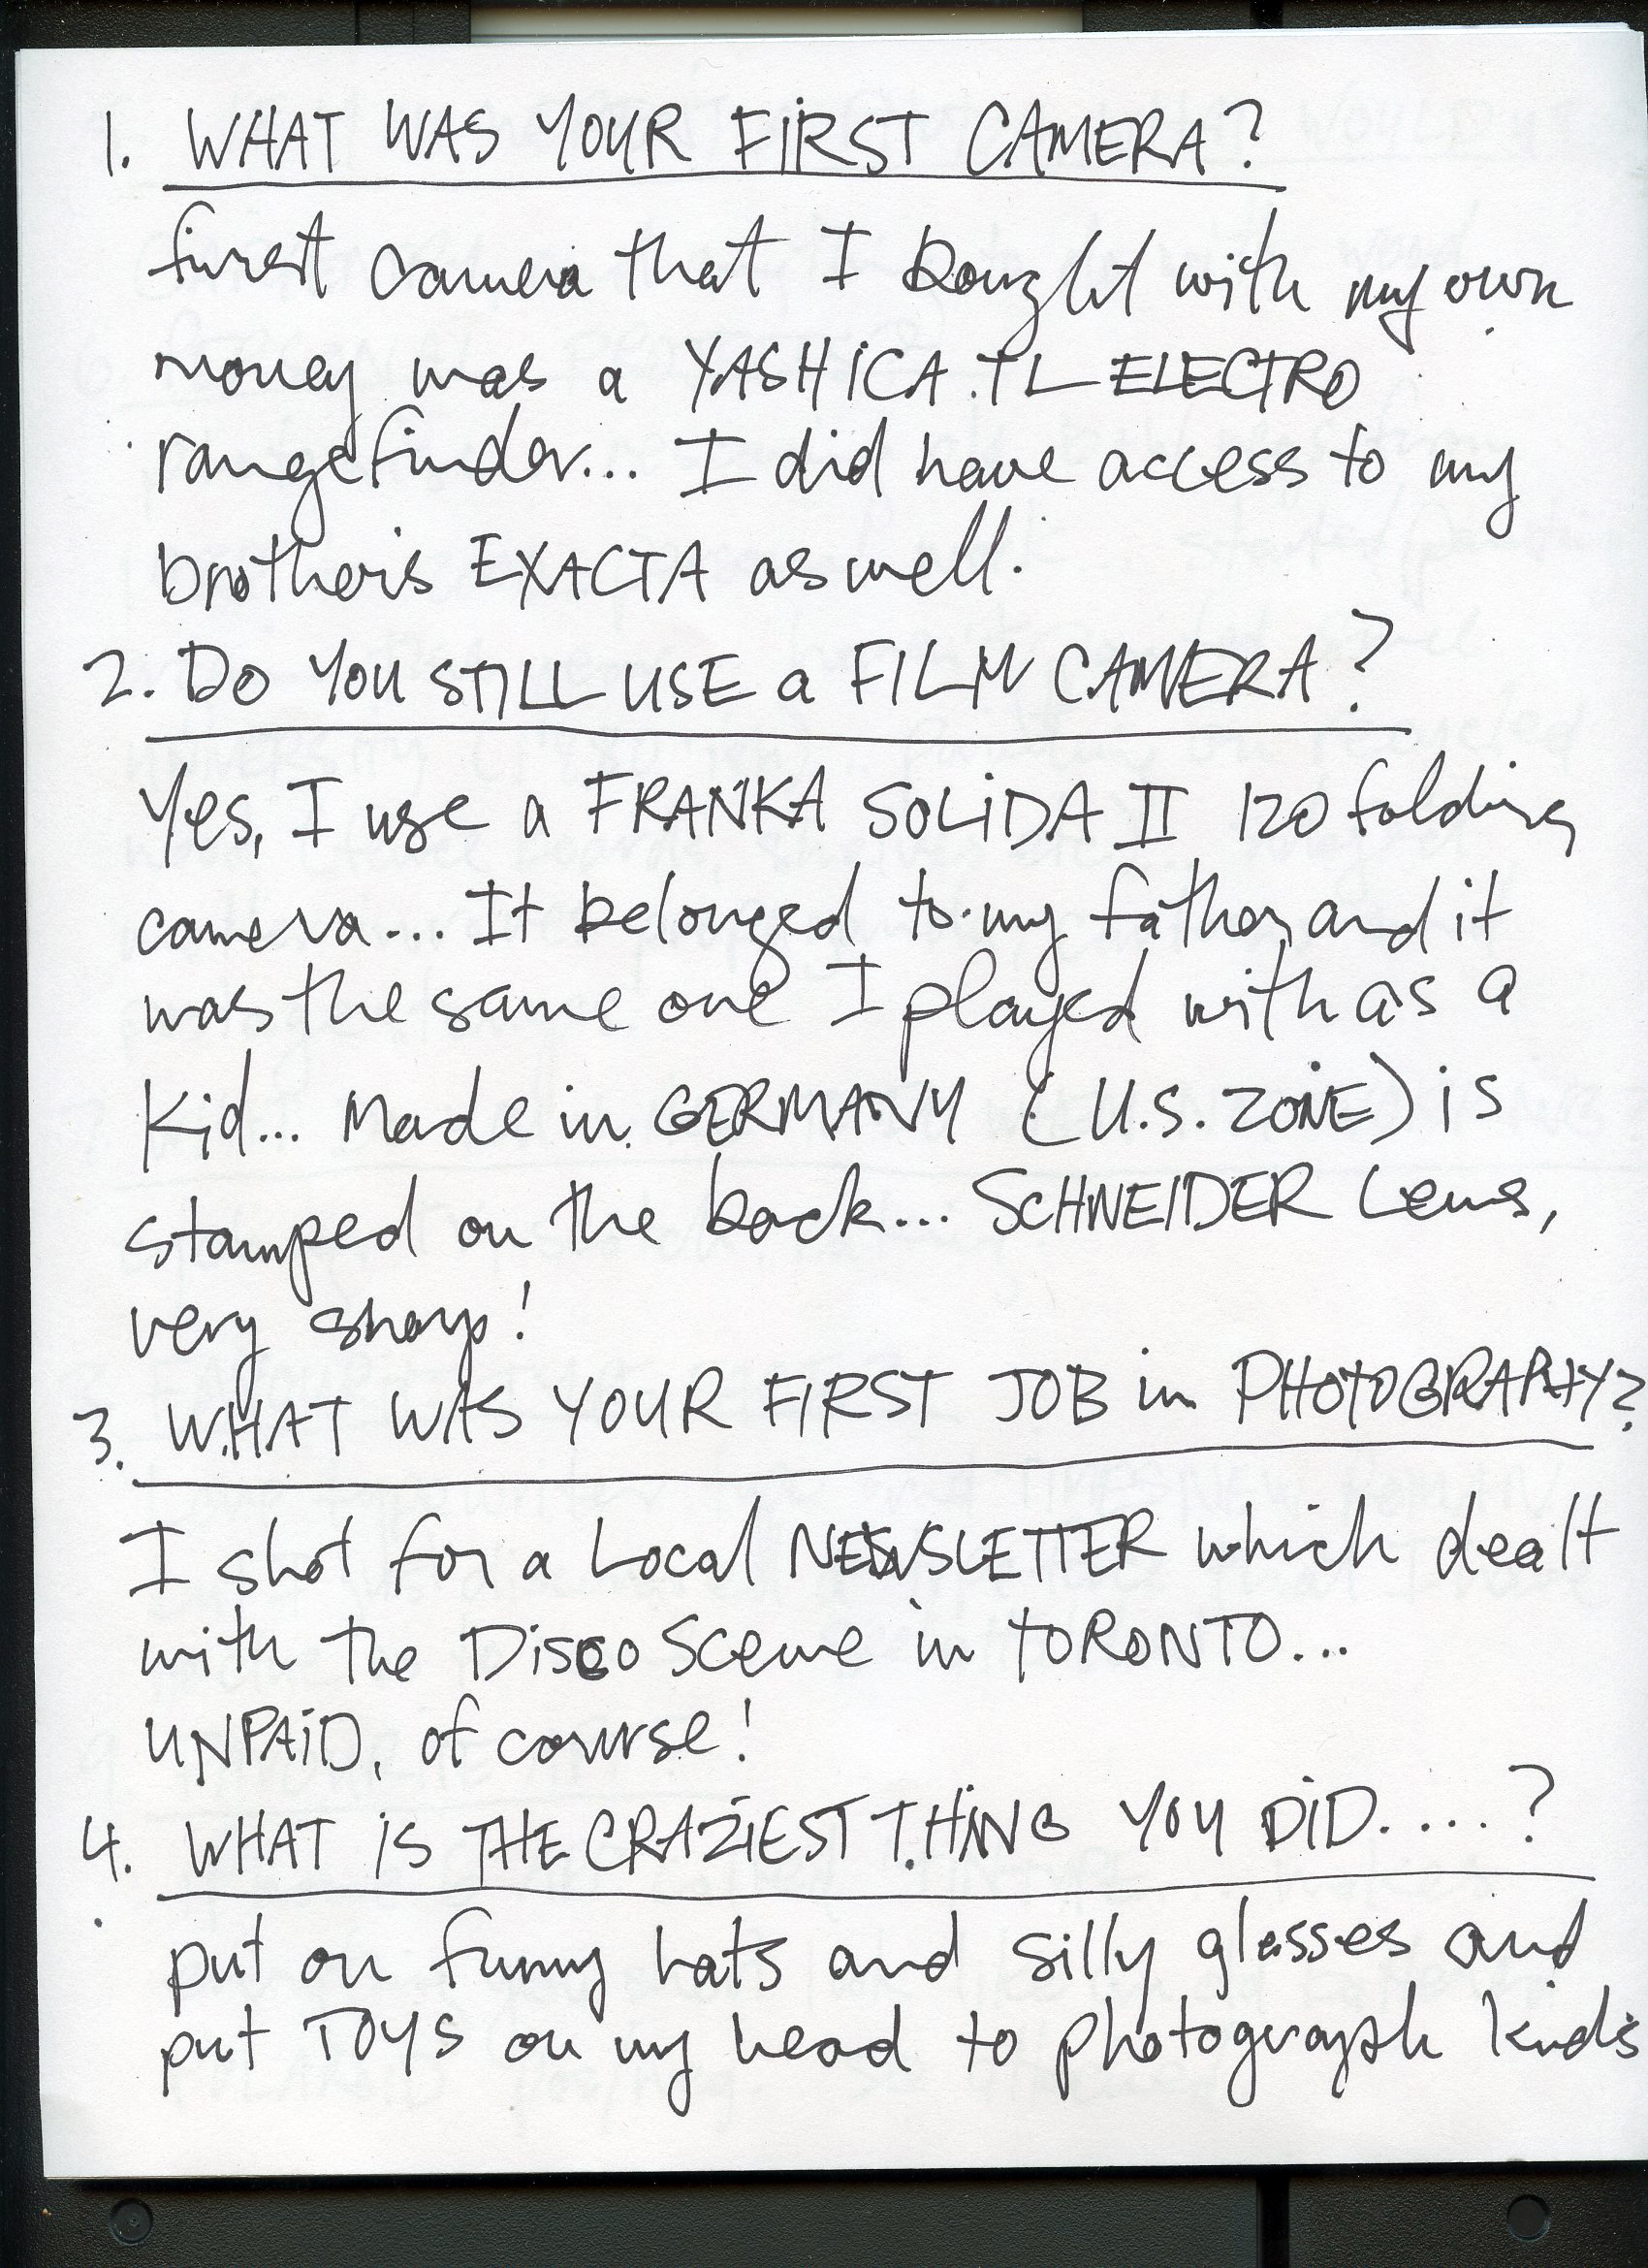 1. WHAT WAS YOUR FIRST CAMERA?
first camera that I bought with my own
money was a YASHICA TL ELECTRO
rangefinder... I did have access to my
brother's EXACTA as well.
2. DO YOU STILL USE a FILM CAMERA?
Yes, I use a FRANKA SOLIDA II 120 folding
camera... It belonged to my father and it
was the same one I played with as a
Kid... Made in GERMANY (U.S. ZONE) is
stamped on the back... SCHNEIDER Lens,
very sharp!
3. WHAT WAS YOUR FIRST JOB in PHOTOGRAPHY?
I shot for a Local NEWSLETTER which dealt
with the Disco Scene in TORONTO...
UNPAID, of course!
4. WHAT IS THE CRAZIEST THING YOU DID.....?
put on funny hats and silly glasses and
put TOYS on my head to photograph kids